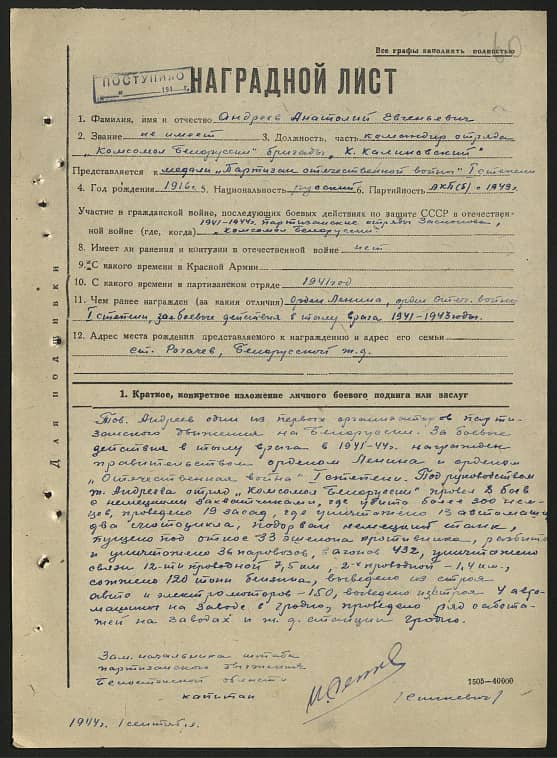 Все графы заполнять полностью
60
ПОСТУПИЛО
194 г.
НАГРАДНОЙ ЛИСТ
1. Фамилия, имя и отчество Андреев Анатолий Евгеньевич
2. Звание не имеет 3. Должность, часть командир отряда
„Комсомол Белоруссии" бригады „К. Калиновский"
Представляется к медали „Партизан отечественной войны" I степени
4. Год рождения 1916г. 5. Национальность русский 6. Партийность ВКП(б) с 1943г.
Участие в гражданской войне, последующих боевых действиях по защите СССР и отечествен-
ной войне (где, когда) 1941-1944г. партизанские отряды
„Комсомол Белоруссии"
8. Имеет ли ранения и контузии в отечественной войне нет
9. С какого времени в Красной Армии
10. С какого времени в партизанском отряде 1941 год
11. Чем ранее награжден (за какия отличия) Орден Ленина, орден Отеч. война
I степени, за боевые действия в тылу врага 1941-1943 годы.
12. Адрес места рождения представляемого к награждению и адрес его семьи
ст. Рогачев, Белорусской ж.д.
Для подшивки
1. Краткое, конкретное изложение личного боевого подвига или заслуг
Тов. Андреев один из первых организаторов парти-
занского движения на Белоруссии. За боевые
действия в тылу врага в 1941-44г. награжден
правительством орденом Ленина и орденом
„Отечественная война" I степени. Под руководством
т. Андреева отряд „Комсомол Белоруссии" провел боев
с немецкими захватчиками, где убито более 300 нем-
цев, проведено 19 засад, где уничтожено 13 автомашин
два мотоцикла, подорван немецкий танк,
пущено под откос 33 эшелона противника, разбито
и уничтожено 36 паровозов, вагонов 432, уничтожено
связи 12-ти проводной 7,5 км, 2-х проводной - 1,4 км.,
сожжено 120 тонн бензина, выведено из строя
авто и электромоторов - 150, выведено из строя 4 авто-
машины на заводе в Гродно, проведено ряд сабота-
жей на заводах и ж.д. станции Гродно.
Зам. начальника штаба
партизанского движения
Белостокской области
капитан
1505—40000
1944г. 1 сентября.